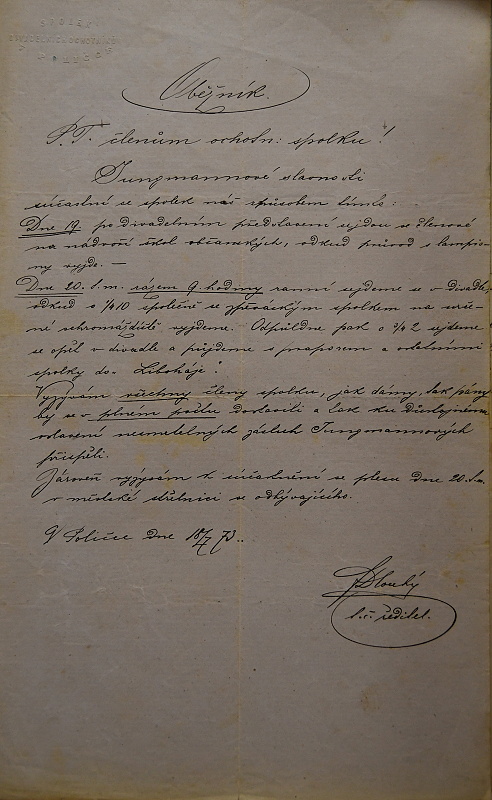 SPOLEK
Oběžník.
P. T. členům ochotn: spolku!
Jungmannové slavnosti
súčastní se spolek náš spůsobem tímto:
Dne 19. po divadelním představení sejdou se členové
na nádvoří škol občanských, odkud průvod s lampio-
ny vyjde. —
Dne 20. t. m. rázem 9. hodiny ranní sejdeme se v divadle,
odkud o 1/4 10 společně se zpěváckým spolkem na urče-
né schromáždiště vyjdeme. Odpůldne pak o 3/4 2 sejdeme
se opět v divadle a půjdeme s praporem a ostatními
spolky do Liboháje!
Vyzývám všechny členy spolku, jak dámy, tak pány
by se v plném počtu dostavili a tak ku důstojnému
oslavení nesmrtelných zásluh Jungmannových
přispěli.
Zároveň vyzývám k súčastnění se plesu dne 20. t. m.
v městské střelnici se odbývajícího.
V Poličce dne 18/7 73.
Dlouhý
t. č. ředitel.